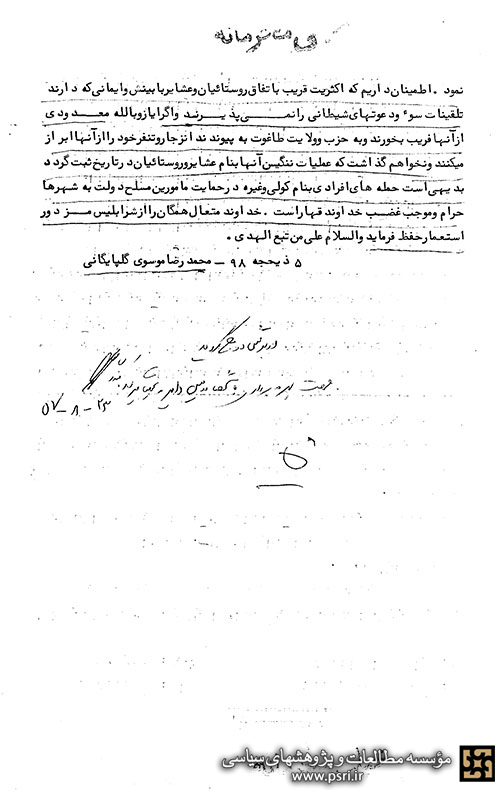 نمود . اطمینان داریم که اکثریت قریب باتفاق روستائیان وعشایربابینش وایمانی که دارند
تلقینات سوء ودعوتهای شیطانی رانمی پذیرند واگرایازوبالله معدودی
ازآنها فریب بخورند وبه حزب وولایت طاغوت به پیوندند انزجاروتنفرخودراازآنهاابراز
میکنند ونخواهم گذاشت که عملیات ننگین آنها بنام عشایروروستائیان درتاریخ ثبت گردد
بدیهی است حمله های افرادی بنام کولی وغیره درحمایت مامورین مسلح دولت به شهرها
حرام وموجب غضب خداوند قهاراست . خداوند متعال همگان راازشرابلیس مزدور
استعمارحفظ فرماید والسلام علی من تبع الهدی .
۵ ذیحجه ۹۸ – محمد رضا موسوی گلپایگانی
۵۷-۸-۲۳
مؤسسه مطالعات و پژوهشهای سیاسی
www.psri.ir